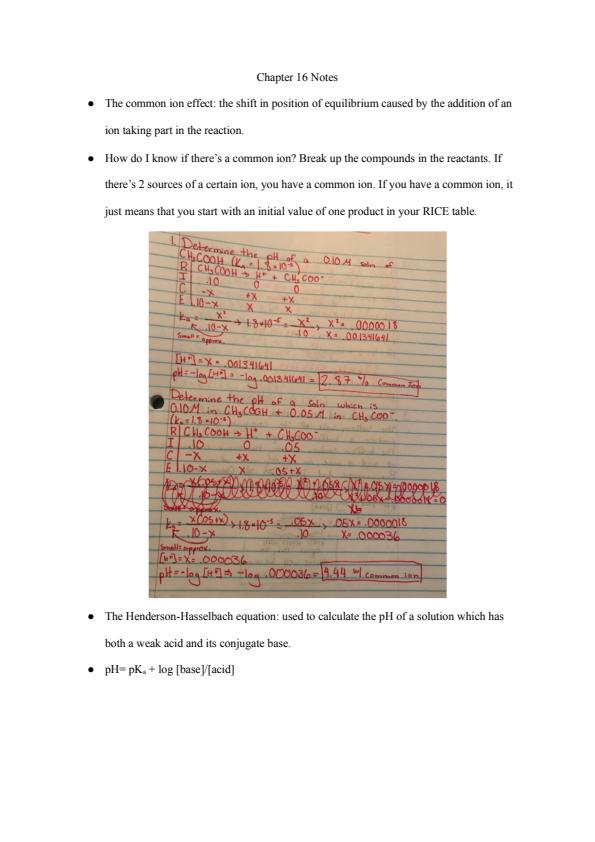 Chapter 16 Notes
● The common ion effect: the shift in position of equilibrium caused by the addition of an
ion taking part in the reaction.
● How do I know if there's a common ion? Break up the compounds in the reactants. If
there's 2 sources of a certain ion, you have a common ion. If you have a common ion, it
just means that you start with an initial value of one product in your RICE table.
1. Determine the pH of a 0.10M soln of
CH₃COOH (Ka = 1.8×10⁻⁵)
R CH₃COOH → H⁺ + CH₃COO⁻
I .10 0 0
C -x +x +x
E .10-x x x
Ka = x²/.10-x → 1.8×10⁻⁵ = x²/.10 , x² = .0000018
x = .001341641
Small = approx.
[H⁺] = x = .001341641
pH = -log[H⁺] = -log .001341641 = 2.87 Common Ion
Determine the pH of a soln which is
0.10M in CH₃COOH + 0.05M in CH₃COO⁻
(Ka = 1.8×10⁻⁵)
R CH₃COOH → H⁺ + CH₃COO⁻
I .10 0 .05
C -x +x +x
E .10-x x .05+x
Ka = x(.05+x)/.10-x → 1.8×10⁻⁵ = .05x/.10 , .05x = .0000018
x = .000036
Small = approx.
[H⁺] = x = .000036
pH = -log[H⁺] ⇒ -log .000036 = 4.44 w/ common ion
● The Henderson-Hasselbach equation: used to calculate the pH of a solution which has
both a weak acid and its conjugate base.
● pH= pKₐ + log [base]/[acid]